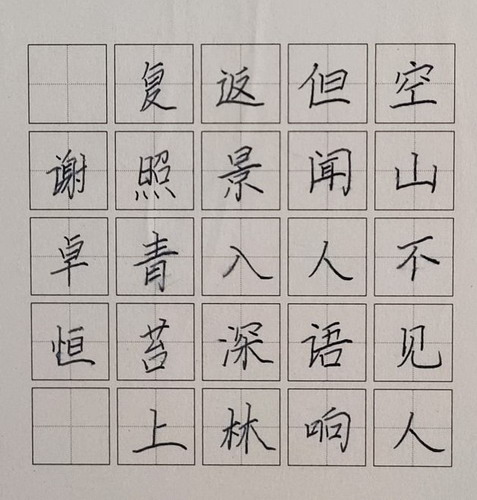 空山不见人
但闻人语响
返景入深林
复照青苔上
谢卓恒